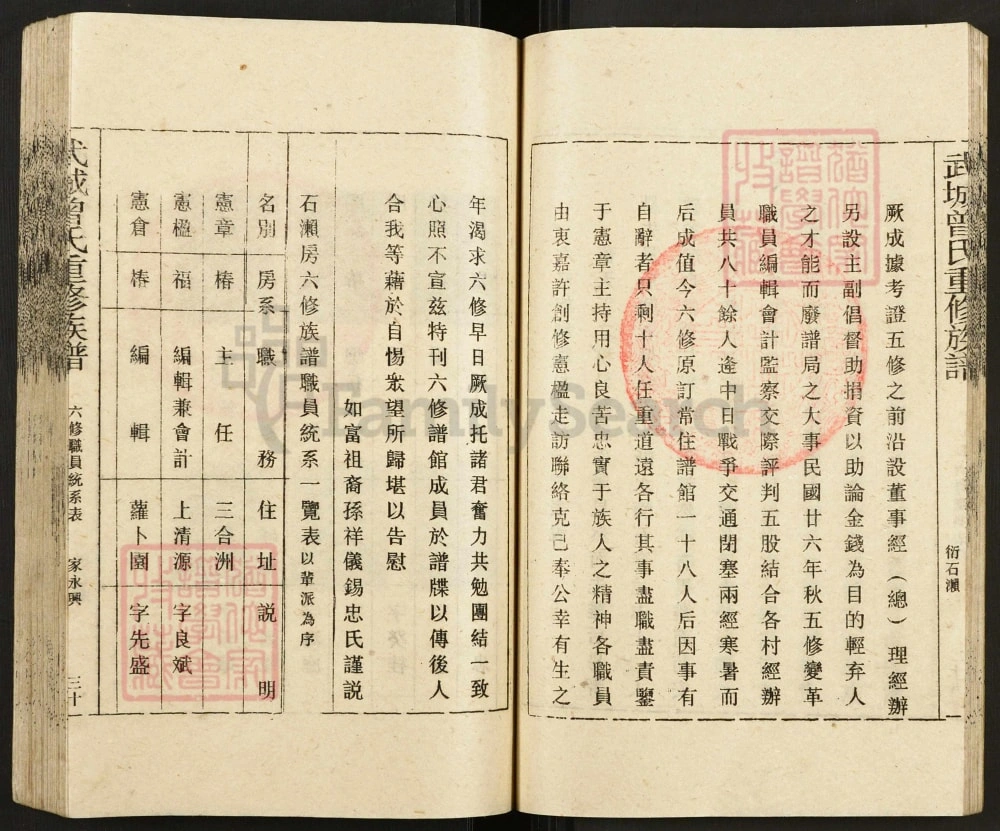 武城曾氏重修族譜
衍石瀨
厥成據考證五修之前沿設董事經(總)理經辦
另設主副倡督助捐資以助論金錢為目的輕弃人
之才能而廢譜局之大事民國廿六年秋五修變革
職員編輯會計監察交際評判五股結合各村經辦
員共八十餘人逄中日戰爭交通閉塞兩經寒暑而
后成值今六修原訂常住譜館一十八人后因事有
自辭者只剩十人任重道遠各行其事盡職盡責鑒
于憲章主持用心良苦忠實于族人之精神各職員
由衷嘉許創修憲楹走訪聯絡克己奉公幸有生之
年渴求六修早日厥成托諸君奮力共勉團結一致
心照不宣茲特刊六修譜館成員於譜牒以傳後人
合我等藉於自惕衆望所歸堪以告慰
如富祖裔孫祥儀錫忠氏謹説
石瀨房六修族譜職員統系一覽表以輩派為序
名別 房系 職務 住址 説明
憲章 椿 主任 三合洲
憲楹 福 編輯兼會計 上清源 字良斌
憲倉 椿 編輯 蘿卜園 字先盛
武城曾氏重修族譜
六修職員統系表 家永興 三十
FamilySearch